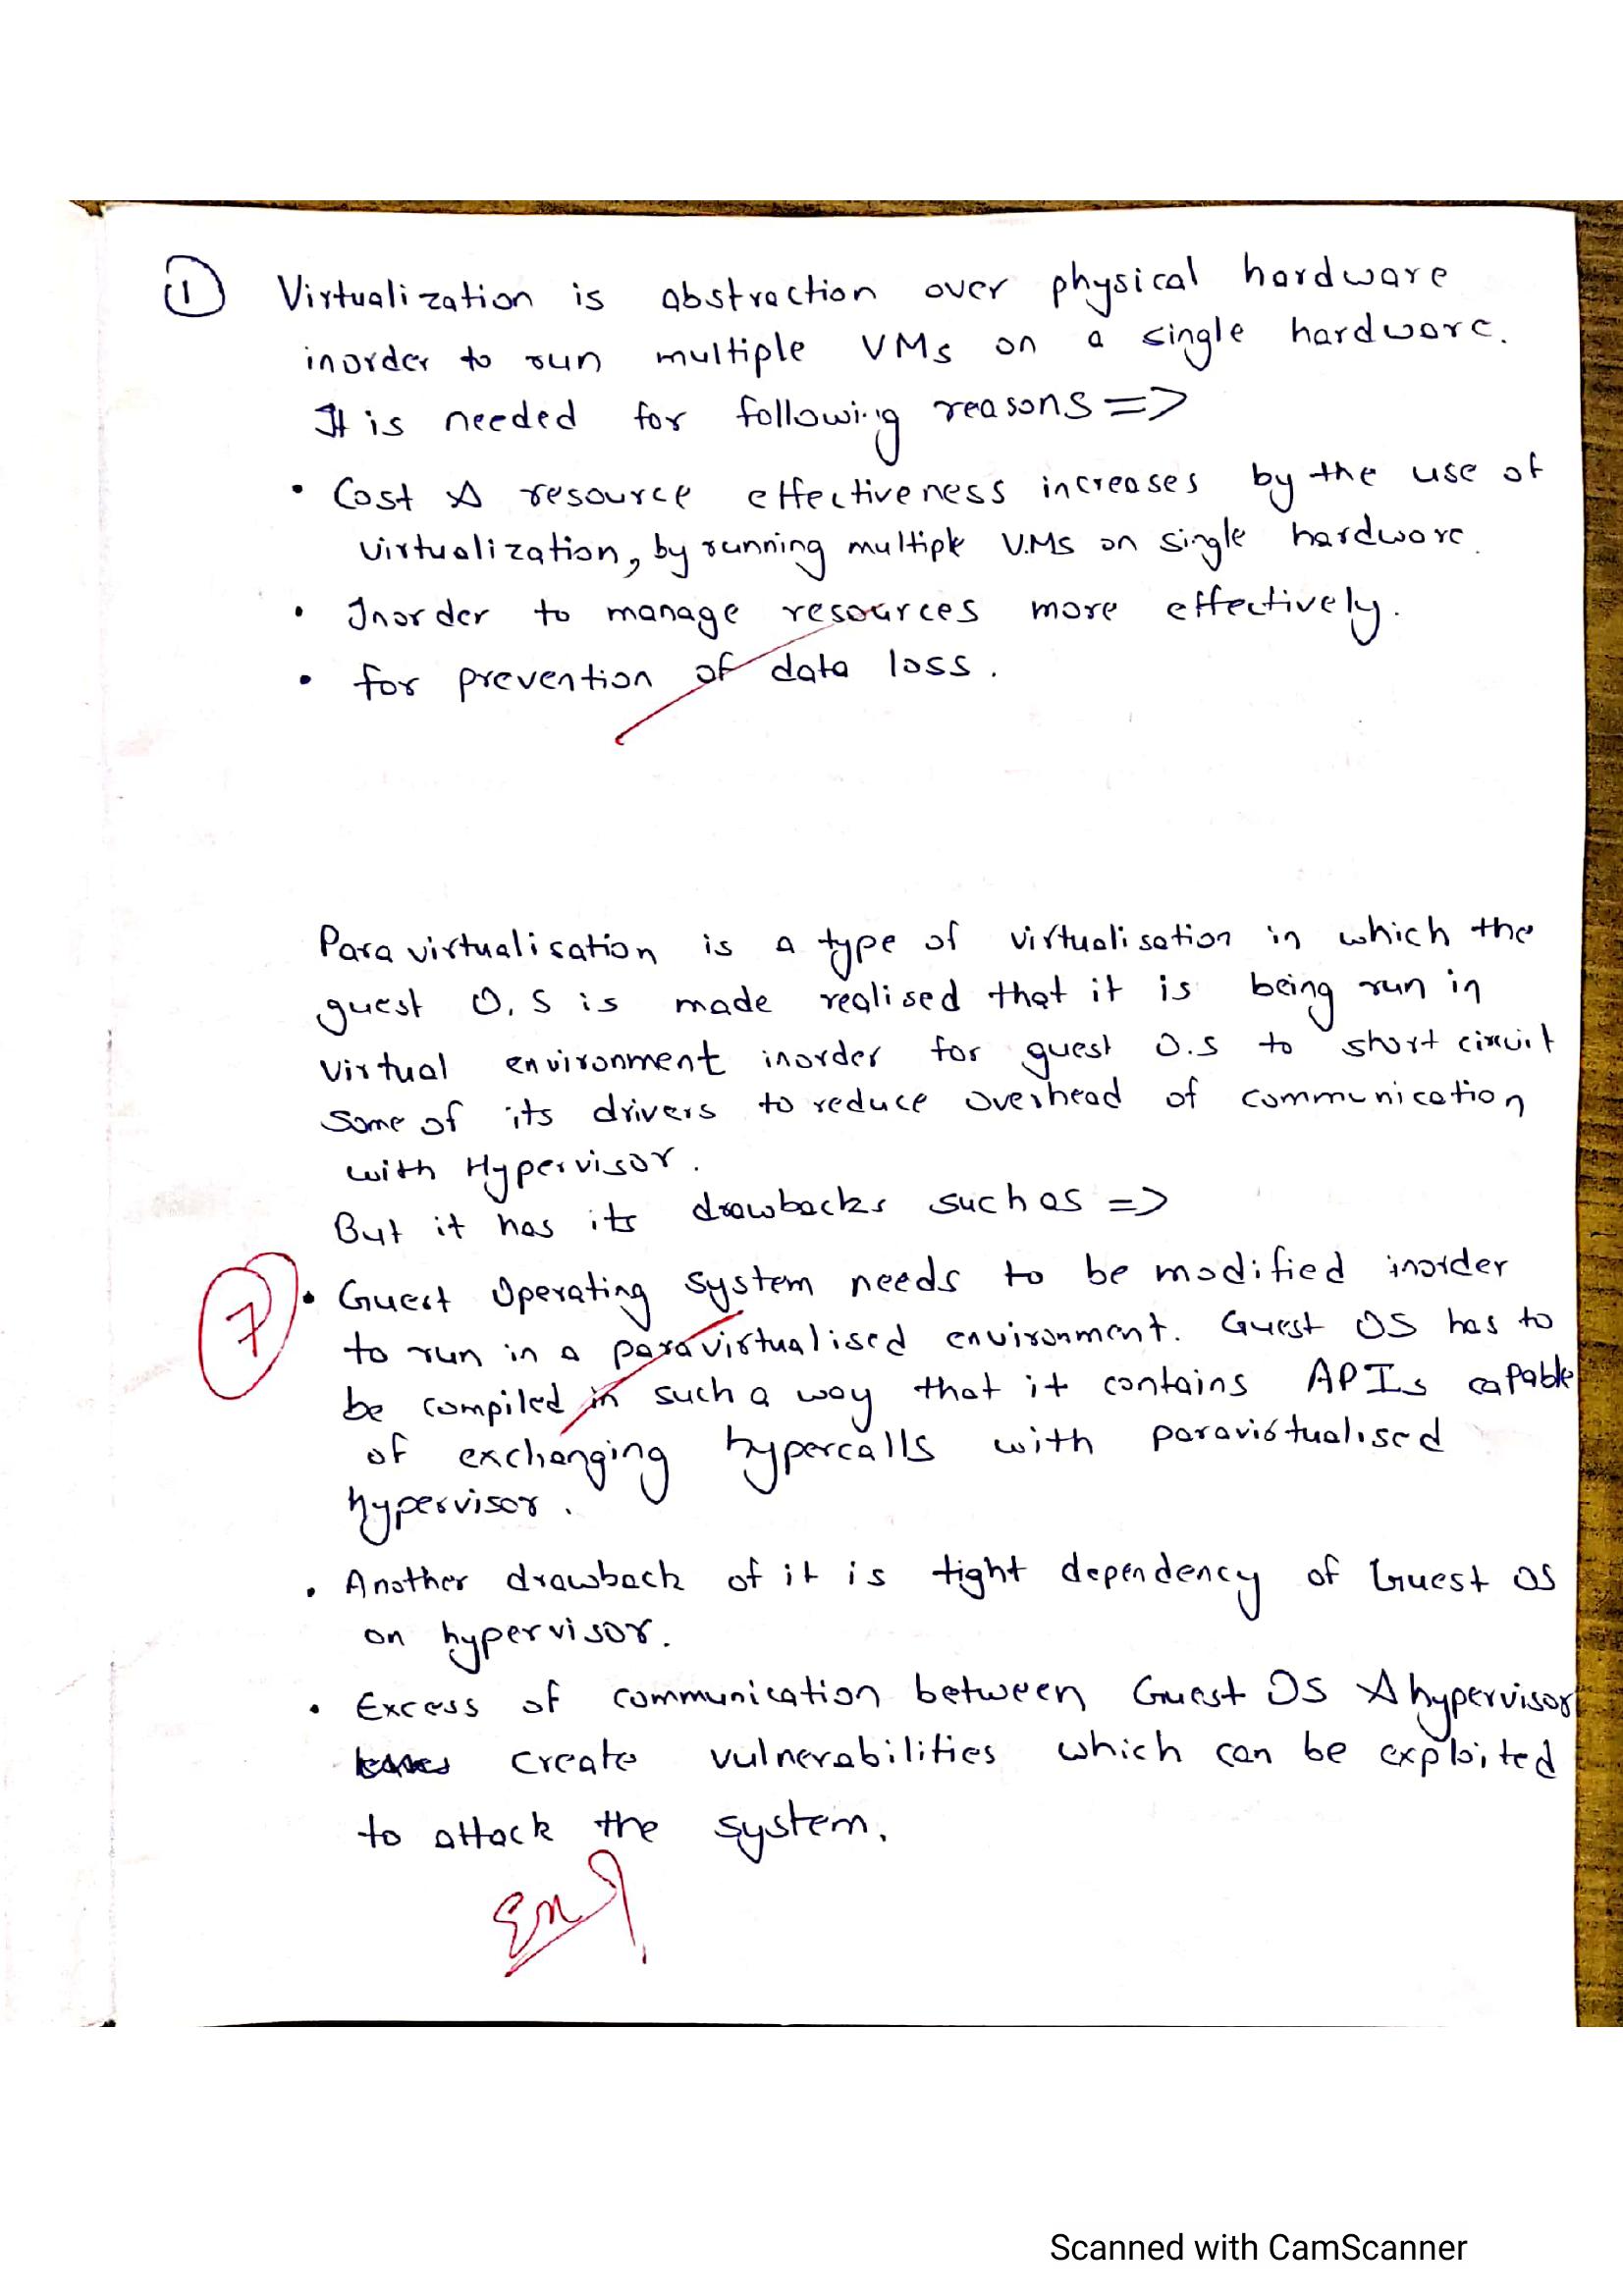 1 Virtualization is abstraction over physical hardware
inorder to run multiple VMs on a single hardware.
It is needed for following reasons =>
• Cost & resource effectiveness increases by the use of
virtualization, by running multiple V.Ms on single hardware.
• Inorder to manage resources more effectively.
• for prevention of data loss.
Para virtualisation is a type of virtualisation in which the
guest O.S is made realised that it is being run in
virtual environment inorder for guest O.S to short circuit
some of its drivers to reduce overhead of communication
with Hypervisor.
But it has its drawbacks such as =>
7
• Guest Operating system needs to be modified inorder
to run in a paravirtualised environment. Guest OS has to
be compiled in such a way that it contains APIs capable
of exchanging hypercalls with paravirtualised
hypervisor.
• Another drawback of it is tight dependency of Guest OS
on hypervisor.
• Excess of communication between Guest OS & hypervisor
create vulnerabilities which can be exploited
to attack the system.
Scanned with CamScanner